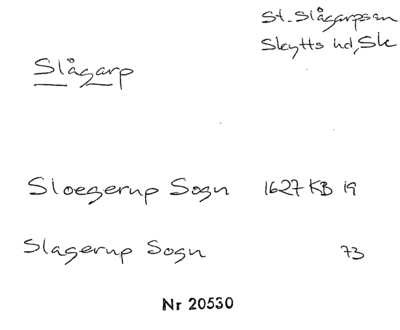 St. Slågarpssn
Skytts hd, Sk
Slågarp
Sloegerup Sogn 1627 KB 19
Slagerup Sogn 73
Nr 20530